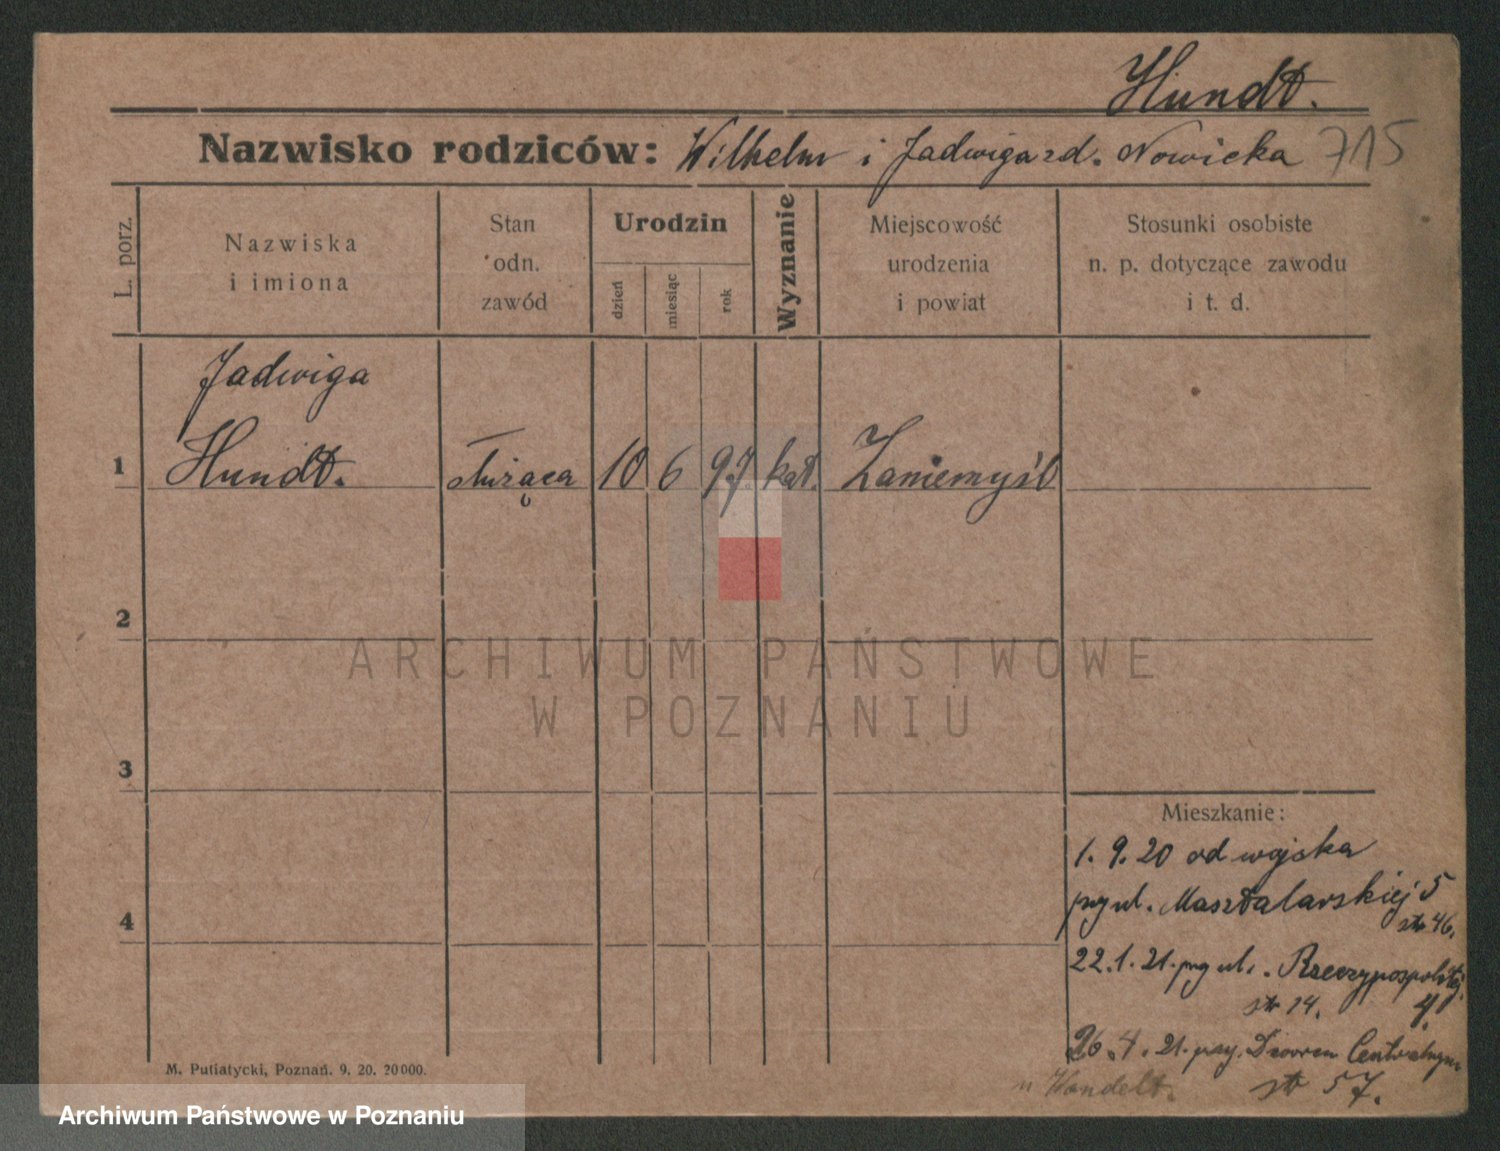 Hundt.
Nazwisko rodziców: Wilhelm i Jadwiga zd. Nowicka 715
L. porz.
Nazwiska
i imiona
Stan
odn.
zawód
Urodzin
dzień
miesiąc
rok
Wyznanie
Miejscowość
urodzenia
i powiat
Stosunki osobiste
n. p. dotyczące zawodu
i t. d.
Jadwiga
1 Hundt. służąca 10 6 97. kat. Zaniemyśl
2
ARCHIWUM PAŃSTWOWE
W POZNANIU
3
Mieszkanie:
1. 9. 20 od wojska
przy ul. Masztalarskiej 5
str 46.
4
22.1.21. przy ul. Rzeczypospolitej
str 14. 4.
26.4.21. przy. Dworcu Centralnym
n Handelt. str 57.
M. Putiatycki, Poznań. 9. 20. 20000.
Archiwum Państwowe w Poznaniu